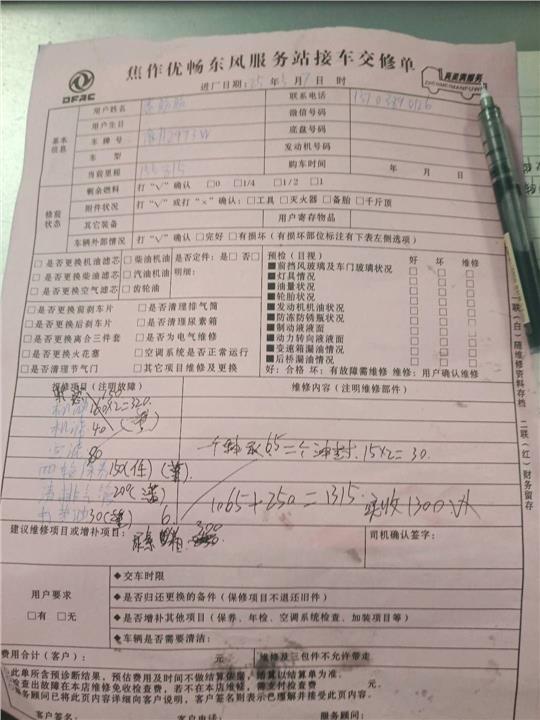 DFAC
焦作优畅东风服务站接车交修单
真美满服务
ZHENMEIMANFUWU
进厂日期：25年 月 日 时
基本信息
用户姓名 联系电话
用户生日 微信号码
车牌号 底盘号码
车型 发动机号码
当前里程 155315 购车时间 年 月 日
修前状态
剩余燃料 打“√”确认 □0 □1/4 □1/2 □1
附件状况 打“√”或打“×”确认：□工具 □灭火器 □备胎 □千斤顶
其它装备 用户寄存物品
车辆外部情况 打“√”确认 □完好 □有损坏（有损坏部位标注有下表左侧选项）
□是否更换机油滤芯 □柴油机油 是否定件：是□ 否□
□是否更换柴油滤芯 □汽油机油 明细：
□是否更换空气滤芯 □齿轮油
□是否更换前刹车片 □是否清理排气筒
□是否更换后刹车片 □是否清理尿素箱
□是否更换离合三件套 □是否为电气维修
□是否更换火花塞 □空调系统是否正常运行
□是否清理节气门 □其它项目维修及更换
预检（目视） 好 坏 维修
■前挡风玻璃及车门玻璃状况 □ □ □
■灯具情况 □ □ □
■油量状况 □ □ □
■轮胎状况 □ □ □
■发动机机油状况 □ □ □
■防冻防锈瓶状况 □ □ □
■制动液液面 □ □ □
■动力转向液液面 □ □ □
■变速箱漏油情况 □ □ □
■后桥漏油情况 □ □ □
好：合格 坏：有故障需维修 维修：用户确认维修
报修项目（注明故障） 维修内容（注明维修部件）
机油160×2=320
机滤40
80
150
200
30
6
300
一个轴承65 二个油封.15×2=30.
1065+250=1315.实收1300
建议维修项目或增补项目： 司机确认签字：
用户要求
□有 □无
◆交车时限
◆是否归还更换的备件（保修项目不退还旧件）
◆是否增补其他项目（保养、年检、空调系统检查、加装项目等）
◆车辆是否需要清洁：
费用合计（客户）： 元 维修及三包件不允许带走
此单所含预诊断结果，预估费用及时间不做结算依据，结算以结算单为准。
检查出故障在本店维修免收检查费，若不在本店维修，需支付检查费 元。
服务顾问已将此页内容详细向客户说明，客户签名则表示已理解并接受此页内容。
客户签名： 客户电话： 服务顾问：
一联（白）随维修资料存档 二联（红）财务留存